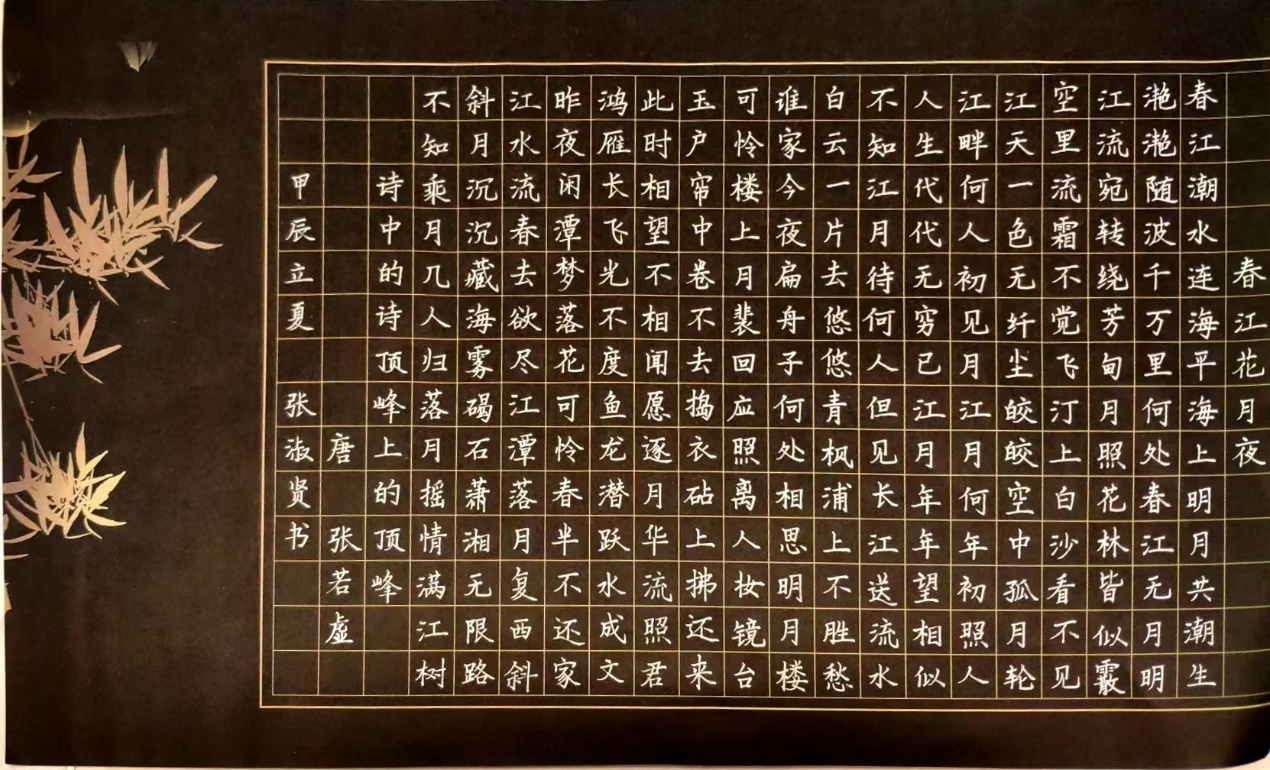 春江花月夜
春江潮水连海平海上明月共潮生
滟滟随波千万里何处春江无月明
江流宛转绕芳甸月照花林皆似霰
空里流霜不觉飞汀上白沙看不见
江天一色无纤尘皎皎空中孤月轮
江畔何人初见月江月何年初照人
人生代代无穷已江月年年望相似
不知江月待何人但见长江送流水
白云一片去悠悠青枫浦上不胜愁
谁家今夜扁舟子何处相思明月楼
可怜楼上月裴回应照离人妆镜台
玉户帘中卷不去捣衣砧上拂还来
此时相望不相闻愿逐月华流照君
鸿雁长飞光不度鱼龙潜跃水成文
昨夜闲潭梦落花可怜春半不还家
江水流春去欲尽江潭落月复西斜
斜月沉沉藏海雾碣石萧湘无限路
不知乘月几人归落月摇情满江树
诗中的诗顶峰上的顶峰
唐 张若虚
甲辰立夏 张淑贤书